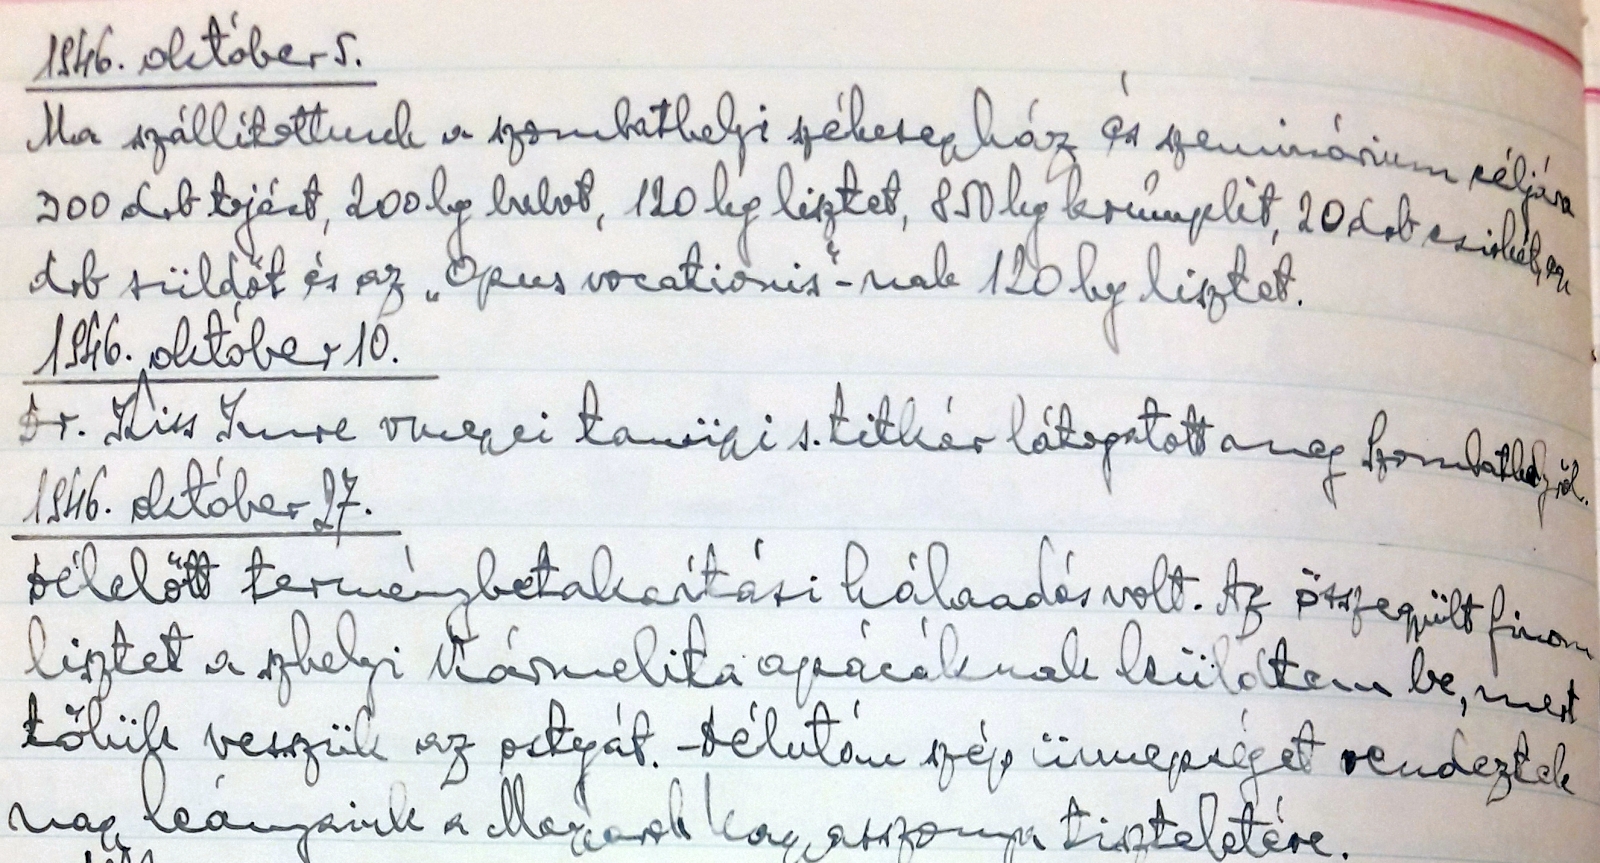 1946. október 5.
Ma szállítottunk a szombathelyi székesegyház és szeminárium céljára
300 drb tojást, 200 kg babot, 120 kg lisztet, 850 kg krumplit, 20 drb csirkét, egy
drb süldőt és az „Opus vocationis"-nak 120 kg lisztet.
1946. október 10.
Dr. Kiss Imre vmegyei tanügyi s. titkár látogatott meg Szombathelyről.
1946. október 27.
Délelőtt terménybetakarítási hálaadás volt. Az összegyűlt finom
lisztet a szhelyi Kármelita apácáknak küldtem be, mert
tőlük vesszük az ostyát. - Délután szép ünnepséget rendeztek
nagy leányaink a Magyarok Nagyasszonya tiszteletére.